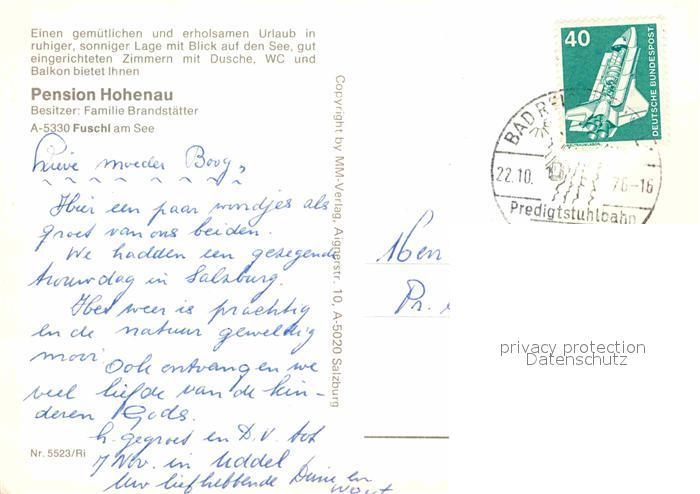 Einen gemütlichen und erholsamen Urlaub in
ruhiger, sonniger Lage mit Blick auf den See, gut
eingerichteten Zimmern mit Dusche, WC und
Balkon bietet Ihnen
Pension Hohenau
Besitzer: Familie Brandstätter
A-5330 Fuschl am See
Lieve moeder Boog,
Hier een paar woordjes als
groet van ons beiden.
We hadden een gezegende
trouwdag in Salzburg.
Het weer is prachtig
en de natuur geweldig
mooi.
Ook ontvangen we
veel liefde van de kin-
deren Gods.
h. gegroet en D.V. tot
7 Nov. in Uddel
Uw liefhebbende
en
Nr. 5523/Ri
Copyright by MM-Verlag, Aignerstr. 10, A-5020 Salzburg
40
DEUTSCHE BUNDESPOST
BAD RE
22.10. 76-16
Predigtstuhlbahn
Pr.
privacy protection
Datenschutz